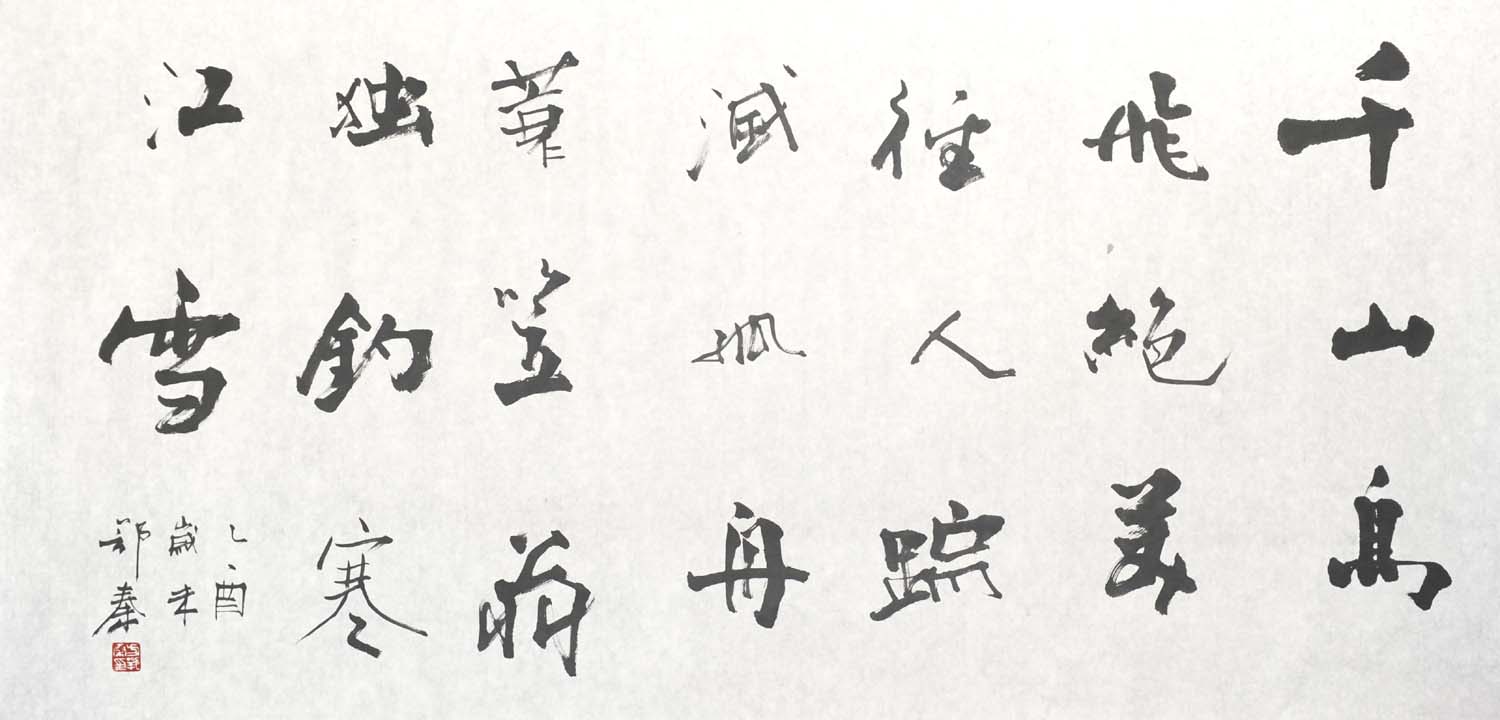 千山鳥
飛絕萬
徑人踪
滅孤舟
蓑笠翁
独釣寒
江雪
乙酉
歲末